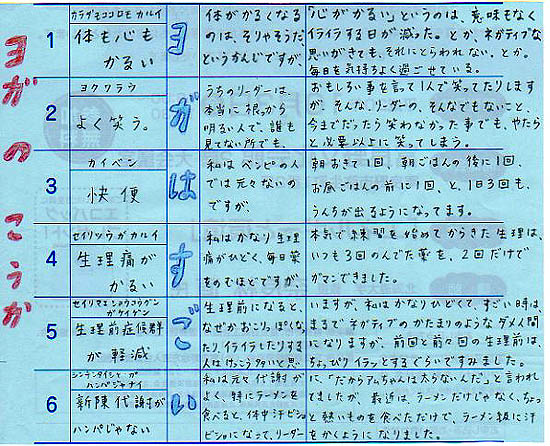 ヨガのこうか
ヨガはすごい
1
カラダもココロモ カルイ
体も心も
かるい
体がかるくなる
のは、そりゃそうだ、
というかんじですが、
「心がかるい」というのは、意味もなく
イライラする日が減った。とか、ネガティブな
思いがきても、それにとらわれない、とか。
毎日を気持ちよく過ごせている。
2
ヨクワラウ
よく笑う。
うちのリーダーは、
本当に根っから
明るい人で、誰も
見てない所でも、
おもしろい事を言って1人で笑ってたりします
が、そんな、リーダーの、そんなでもないこと、
今までだったら笑わなかった事でも、やたら
と必要以上に笑ってしまう。
3
カイベン
快便
私はベンピの人
では元々ないの
ですが、
朝おきて1回、朝ごはんの後に1回、
お昼ごはんの前に1回、と、1日3回も、
うんちが出るようになってます。
4
セイリツウガカルイ
生理痛が
かるい
私はかなり生理
痛がひどく、毎日薬
をのむほどですが、
本気で練習を始めてからきた生理は、
いつも3回のんでた薬を、2回だけで
ガマンできました。
5
セイリマエショウコウグン
ガケイゲン
生理前症候群
が軽減
生理前になると、
なぜかおこりっぽくなっ
たり、イライラしたりする
人はけっこう多いと思
いますが、私はかなりひどくて、すごい時は
まるで ネガティブのかたまりのような ダメ人間
になりますが、前回と前々回の生理前は、
ちょっぴりイラッとするぐらいですみました。
6
シンチンタイシャ ガ
ハンパジャナイ
新陳代謝が
ハンパじゃない
私は元々代謝が
よく、特にラーメンを
食べると、体中汗ビショ
ビショになって、リーダー
に、「だからアムちゃんは太らないんだ」と言われ
てましたが、最近は、ラーメンだけじゃなく、ちょっ
と熱いものを食べただけで、ラーメン級に汗
をかくようになりました。